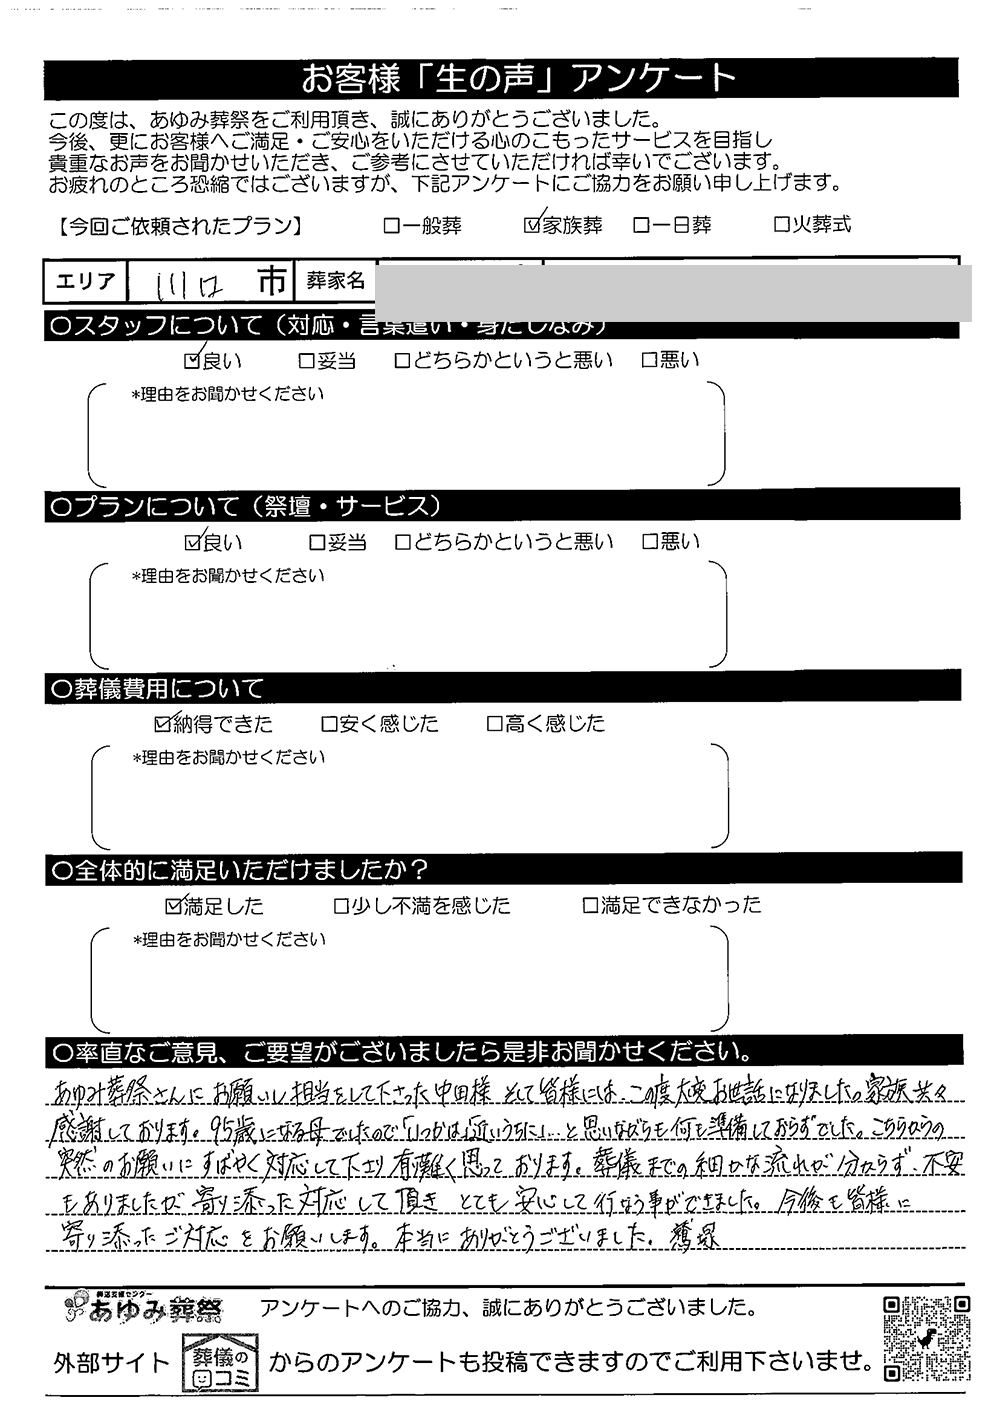 お客様「生の声」アンケート
この度は、あゆみ葬祭をご利用頂き、誠にありがとうございました。
今後、更にお客様へご満足・ご安心をいただける心のこもったサービスを目指し
貴重なお声をお聞かせいただき、ご参考にさせていただければ幸いでございます。
お疲れのところ恐縮ではございますが、下記アンケートにご協力をお願い申し上げます。
【今回ご依頼されたプラン】 □一般葬 ☑家族葬 □一日葬 □火葬式
エリア 川口 市 葬家名
○スタッフについて（対応・言葉遣い・身だしなみ）
☑良い □妥当 □どちらかというと悪い □悪い
*理由をお聞かせください
○プランについて（祭壇・サービス）
☑良い □妥当 □どちらかというと悪い □悪い
*理由をお聞かせください
○葬儀費用について
☑納得できた □安く感じた □高く感じた
*理由をお聞かせください
○全体的に満足いただけましたか？
☑満足した □少し不満を感じた □満足できなかった
*理由をお聞かせください
○率直なご意見、ご要望がございましたら是非お聞かせください。
あゆみ葬祭さんにお願いし担当をして下さった中田様 そして皆様には、この度大変お世話になりました。家族共々
感謝しております。95歳になる母でしたので「いつかは」「近いうちに」…と思いながらも何も準備しておらずでした。こちらからの
突然のお願いにすばやく対応して下さり有難く思っております。葬儀までの細かな流れが分からず、不安
もありましたが寄り添った対応して頂き とても安心して行なう事ができました。今後も皆様に
寄り添ったご対応をお願いします。本当にありがとうございました。
葬送支援センター
あゆみ葬祭 アンケートへのご協力、誠にありがとうございました。
外部サイト 葬儀の口コミ からのアンケートも投稿できますのでご利用下さいませ。